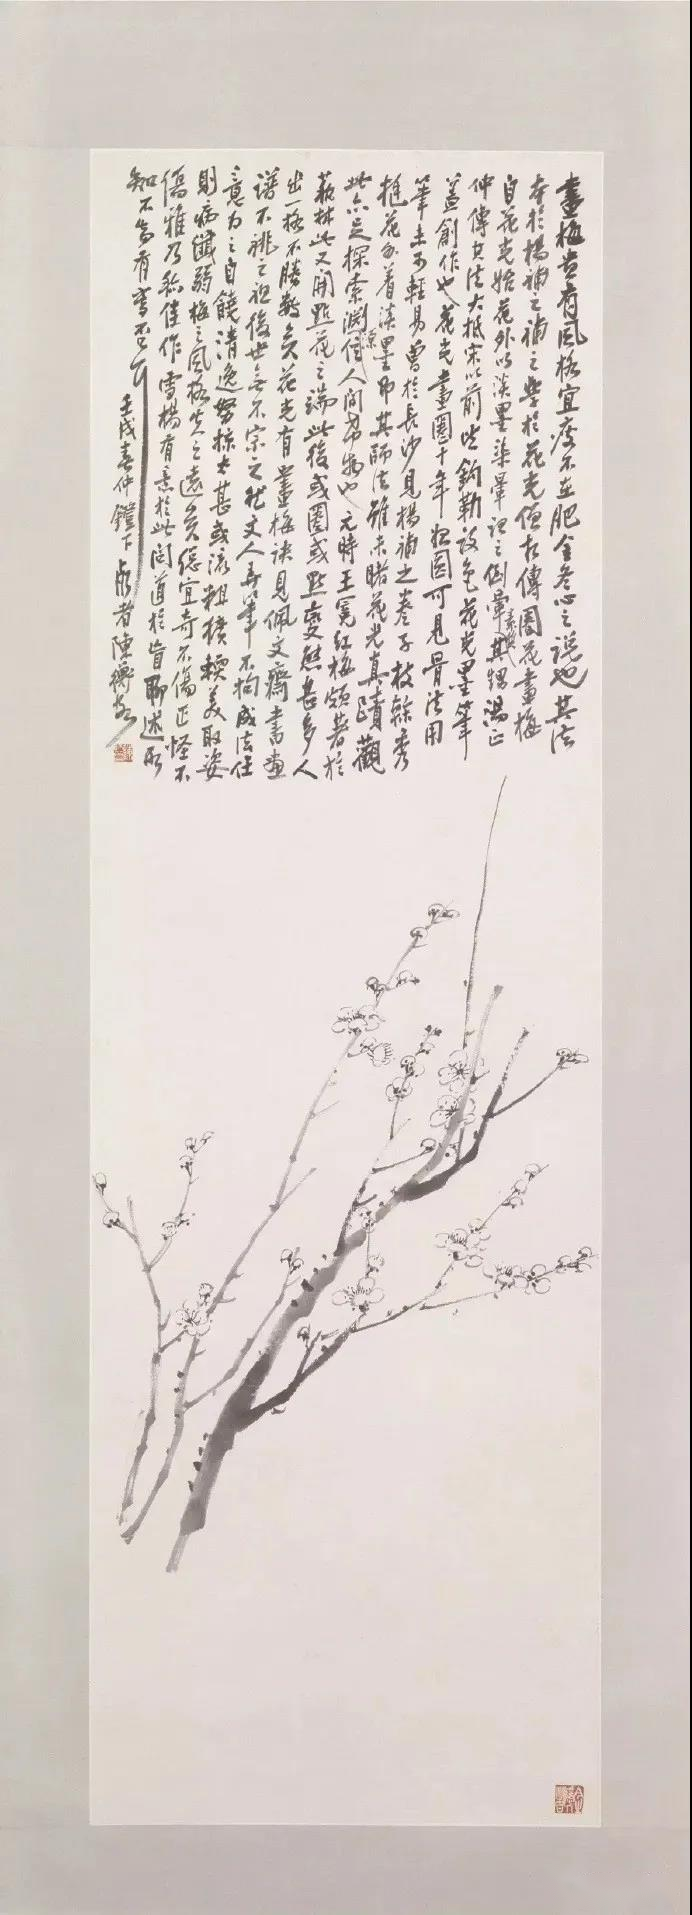 畫梅貴有風格宜瘦不在肥金冬心之說也其法
本於楊補之補之學於花光僧相傳圈花畫梅
自花光始花外以淡墨染暈謂之倒暈其甥湯正
仲傳其法大抵宋以前皆鈎勒設色花光墨筆
蓋創作也花光畫圈十年始圓可見骨法用
筆未可輕易曾於長沙見楊補之卷子枝榦秀
挺花外着淡墨即其師法雖未睹花光真蹟觀
此亦足探索淵源人間希物也元時王冕紅梅頗著於
藝林此又開點花之端此後或圈或點變態甚多人
出一格不勝數矣花光有畫梅訣見佩文齋書畫
譜不祧之祖後世無不宗之然文人弄筆不拘成法任
意為之自饒清逸努掠太甚或流粗獷軟美取姿
則病纖弱梅之風格失之遠矣總宜奇不傷正怪不
傷雅乃稱佳作雪楊有意於此問道於盲聊述所
知不知有當否
壬戌春仲鐙下 朽者陳衡恪